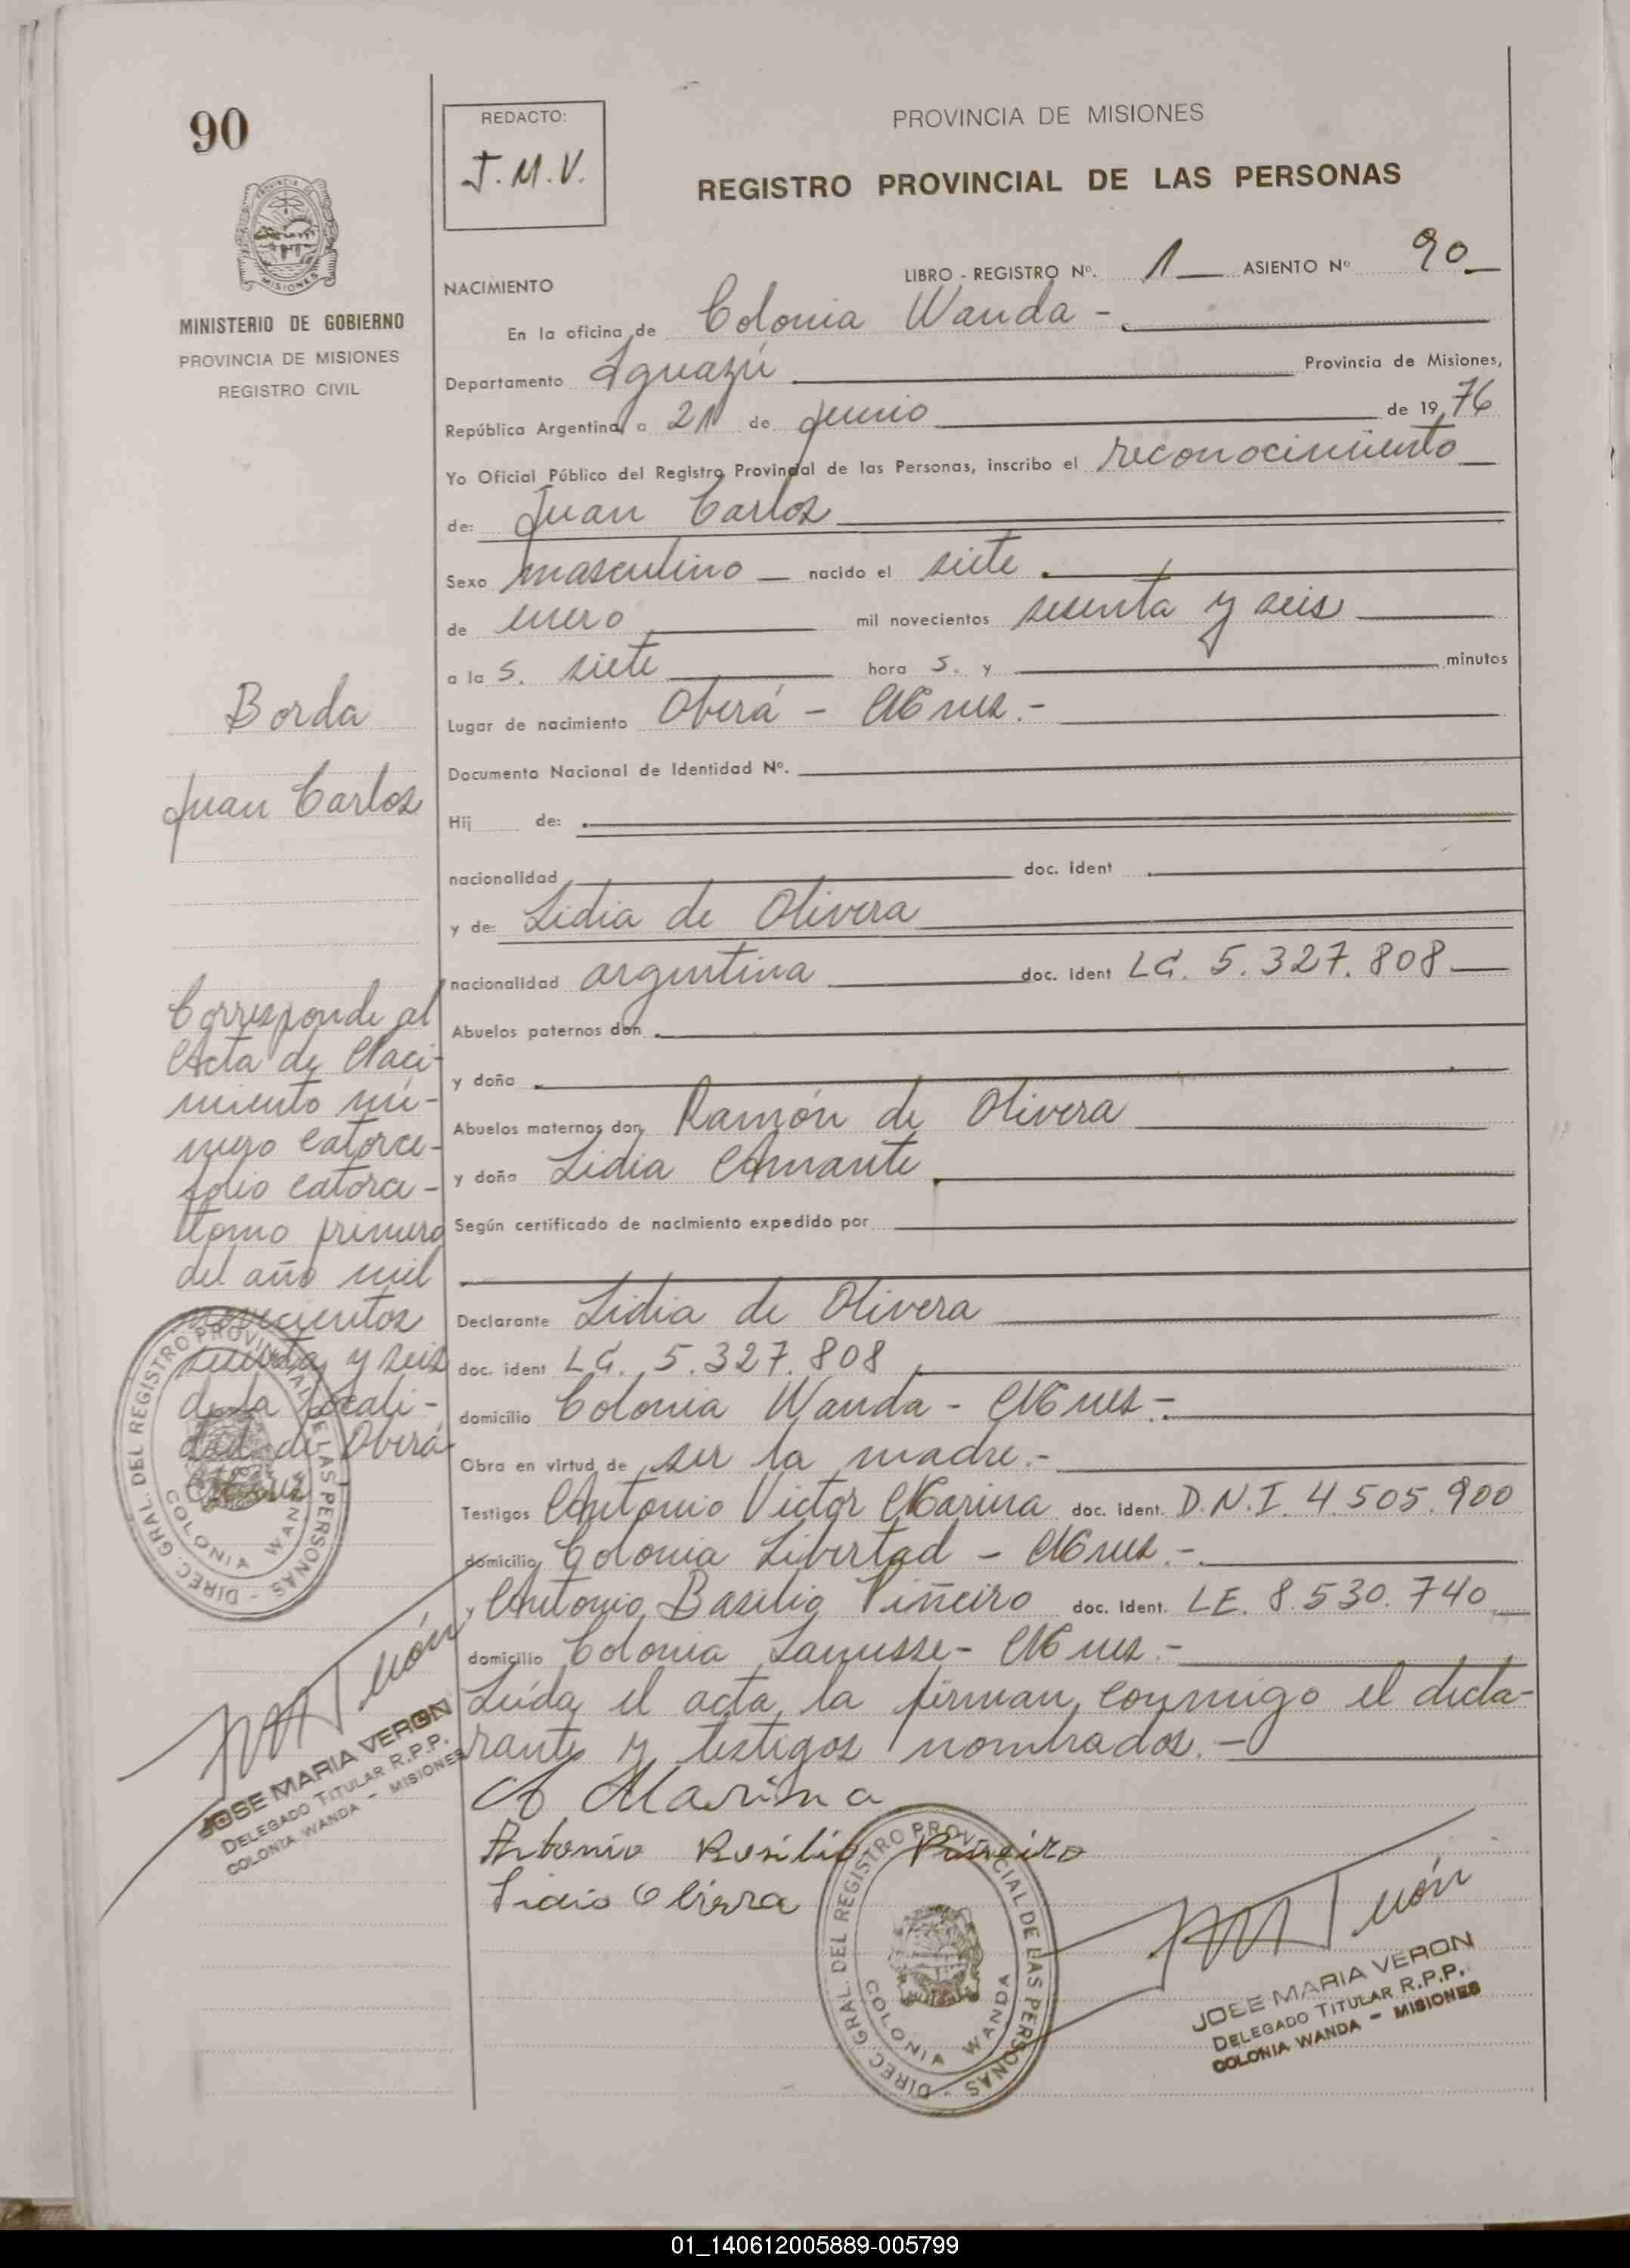 90
REDACTO:
J.M.V.
PROVINCIA DE MISIONES
REGISTRO PROVINCIAL DE LAS PERSONAS
PROVINCIA DE MISIONES
MINISTERIO DE GOBIERNO
PROVINCIA DE MISIONES
REGISTRO CIVIL
NACIMIENTO LIBRO - REGISTRO Nº. 1 ASIENTO Nº 90
En la oficina de Colonia Wanda -
Departamento Iguazú Provincia de Misiones,
República Argentina, a 21 de junio de 1976
Yo Oficial Público del Registro Provincial de las Personas, inscribo el reconocimiento
de: Juan Carlos
Sexo masculino nacido el siete
de enero mil novecientos sesenta y seis
a la s. siete hora s. y minutos
Lugar de nacimiento Oberá - Mnes.-
Documento Nacional de Identidad Nº.
Hij de:
nacionalidad doc. ident
y de: Lidia de Olivera
nacionalidad argentina doc. ident LC. 5.327.808
Abuelos paternos don
y doña
Abuelos maternos don Ramón de Olivera
y doña Lidia Amante
Según certificado de nacimiento expedido por
Declarante Lidia de Olivera
doc. ident LC. 5.327.808
domicilio Colonia Wanda - Mnes.-
Obra en virtud de ser la madre.-
Testigos Antonio Victor Marina doc. ident. D.N.I. 4.505.900
domicilio Colonia Libertad - Mnes.-
y Antonio Basilio Piñeiro doc. Ident. LE. 8.530.740
domicilio Colonia Lanusse - Mnes.-
Leída el acta, la firman conmigo el decla-
rante y testigos nombrados.-
A Marina
Antonio Basilio Piñeiro
Lidia Olivera
Borda
Juan Carlos
Corresponde al
Acta de Naci-
miento nú-
mero catorce-
folio catorce-
tomo primero
del año mil
novecientos
sesenta y seis
de la locali-
dad de Oberá
Mnes
DIREC. GRAL. DEL REGISTRO PROVINCIAL DE LAS PERSONAS -
COLONIA WANDA
JOSE MARIA VERON
DELEGADO TITULAR R.P.P.
COLONIA WANDA - MISIONES
DIREC. GRAL. DEL REGISTRO PROVINCIAL DE LAS PERSONAS -
COLONIA WANDA
JOSE MARIA VERON
DELEGADO TITULAR R.P.P.
COLONIA WANDA - MISIONES
01_140612005889-005799